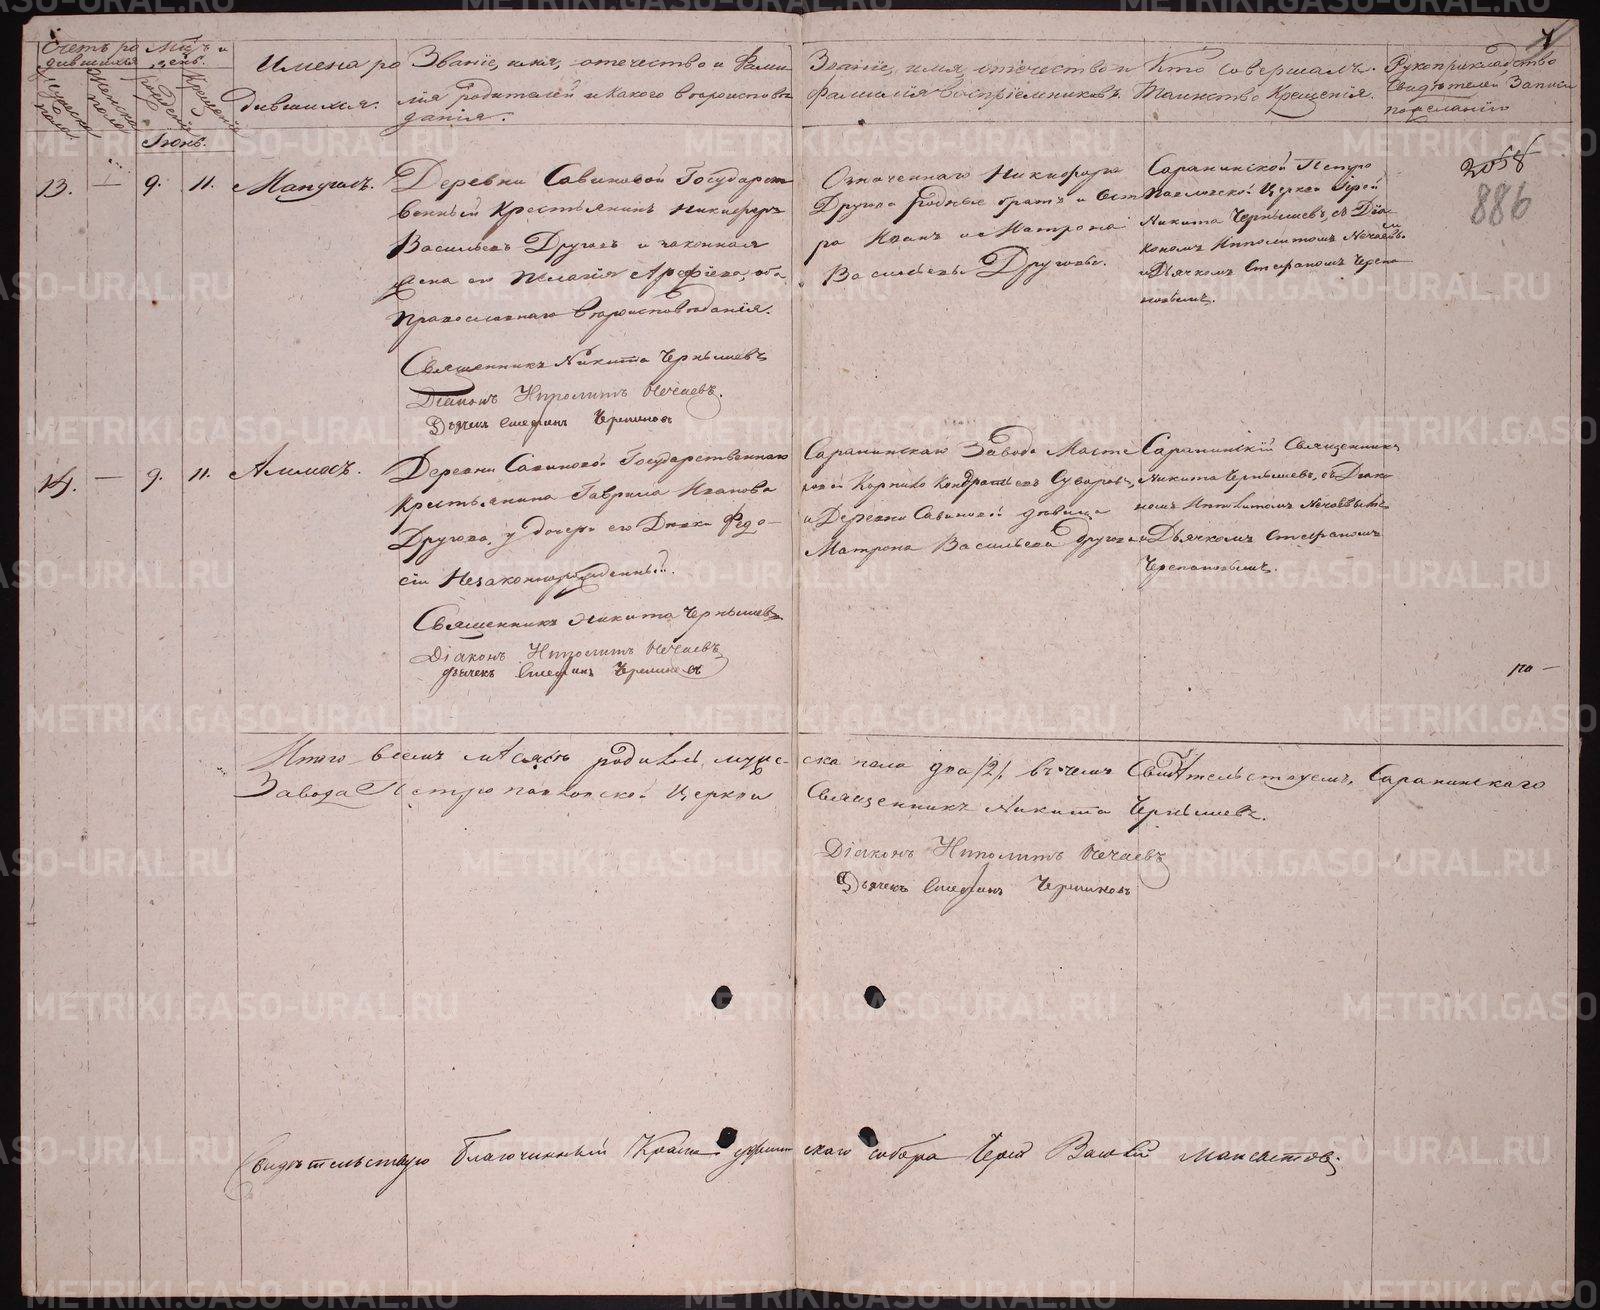 Счетъ ро
дившихся
Мужеска
пола
Женска
пола
Мцъ и
день.
рожденія
Крещенія
Имена ро
дившихся.
Званіе, имя, отечество и Фами
лія родителей и какого вѣроисповѣ
данія.
Званіе, имя, отечество и
фамилія воспріемниковъ
Кто совершалъ
Таинство Крещенія.
Рукоприкладство
Свидѣтелей Записи
по желанію
Іюнь.
13. — 9. 11. Мануилъ.
Деревни Савиновой Государст
венный Крестьянинъ Никифоръ
Васильевъ Друговъ и законная
жена его Пелагія Арефіева, оба
Православнаго Вѣроисповѣданія.
Священникъ Никита Чернышевъ
Діаконъ Ипполитъ Нечаевъ.
Дьячекъ Стефанъ Черепановъ
Означеннаго Никифора
Другова родные братъ и сест
ра Иванъ и Матрона
Васильевы Друговы.
Саранинской Петро
Павловской Церкви Іерей
Никита Чернышевъ, съ Діа
кономъ Ипполитомъ Нечаевымъ
и Дьячкомъ Стефаномъ Черепа
новымъ.
2058
886
14. — 9. 11. Аммосъ.
Деревни Савиновой Государственнаго
Крестьянина Гаврила Иванова
Другова, у дочери его Дѣвки Федо-
сіи Незаконнорожденный.
Священникъ Никита Чернышевъ
Діаконъ Ипполитъ Нечаевъ
Дьячекъ Стефанъ Черепановъ
Саранинскаго Завода Масте
ровой Корнило Кондратьевъ Суворовъ,
и Деревни Савиновой дѣвица
Матрона Васильева Другова
Саранинскій Священникъ
Никита Чернышевъ, съ Діако
номъ Ипполитомъ Нечаевымъ
и Дьячкомъ Стефаномъ
Черепановымъ.
по —
Итого въ семъ мѣсяцѣ родилось мужес-
ка пола два /2/. въ чемъ Свидѣтельствуемъ, Саранинскаго
Завода Петропавловской Церкви
Священникъ Никита Чернышевъ.
Діаконъ Ипполитъ Нечаевъ
Дьячекъ Стефанъ Черепановъ
Свидѣтельствую Благочинный Красноуфимскаго собора Іерей
METRIKI.GASO-URAL.RU